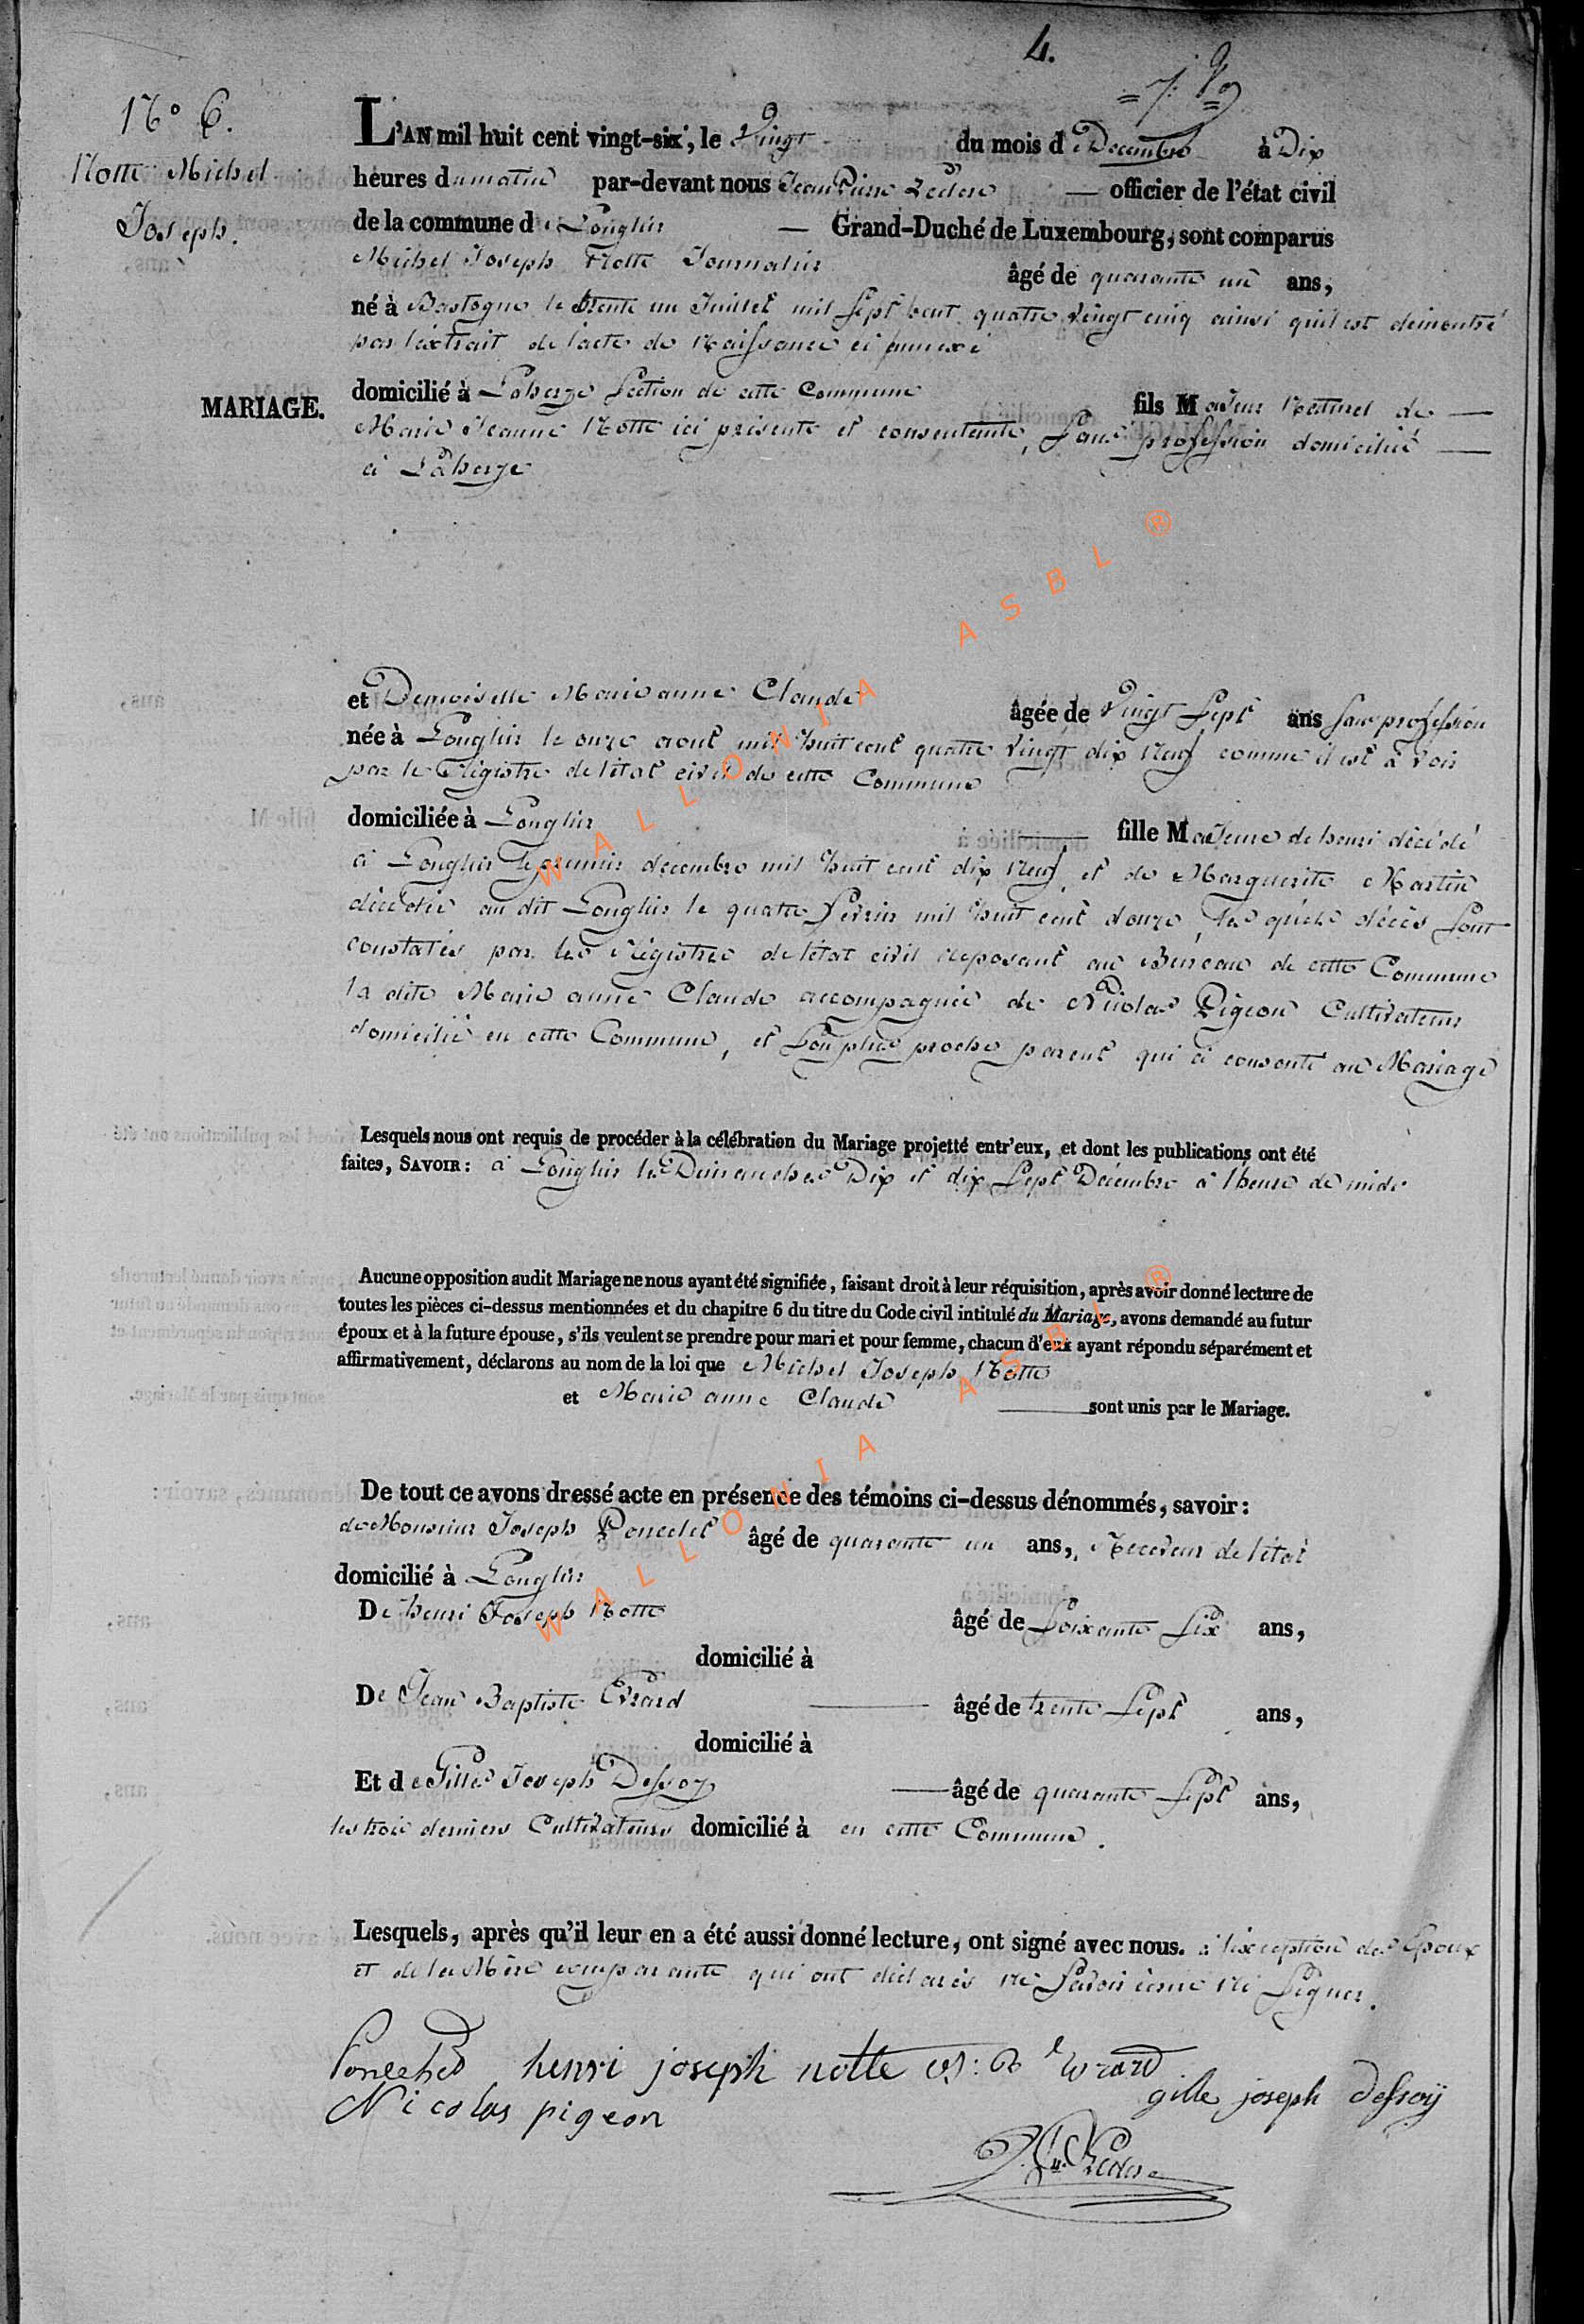 4.
N° 6.
Notte Michel
Joseph.
MARIAGE.
L'AN mil huit cent vingt-six, le Vingt du mois de Decembre à Dix
heures du matin par-devant nous Jean Pierre Leclerc — officier de l'état civil
de la commune de Longlier — Grand-Duché de Luxembourg, sont comparus
Michel Joseph Notte Journalier âgé de quarante un ans,
né à Bastogne le trente un Juillet mil Sept Cent quatre Vingt cinq ainsi qu'il est démontré
par l'extrait de l'acte de Naissance ci annexé
domicilié à Laherze Section de cette Commune fils Majeur Naturel de —
Marie Jeanne Notte ici présente et consentente, Sans profession domiciliée —
à Laherze
et Demoiselle Marie anne Claude âgée de Vingt Sept ans Sans profession
née à Longlier le onze aout mil huit cent quatre Vingt dix Neuf comme il est à Voir
par le Régistre de l'état civil de cette Commune
domiciliée à Longlier — fille Majeure de henri décédé
à Longlier le premier décembre mil huit cent dix Neuf, et de Marguerite Martin
décédée au dit Longlier le quatre Fevrier mil huit cent douze, les quels décès Sont
constatés par les Régistres de l'état civil reposant au Bureau de cette Commune
la dite Marie anne Claude accompagnée de Nicolas Pigeon Cultivateur
domicilié en cette Commune, et Son plus proche parent qui a consenti au Mariage
Lesquels nous ont requis de procéder à la célébration du Mariage projetté entr'eux, et dont les publications ont été
faites, SAVOIR : à Longlier les Dimanches Dix et dix Sept Décembre à l'heure de midi
Aucune opposition audit Mariage ne nous ayant été signifiée, faisant droit à leur réquisition, après avoir donné lecture de
toutes les pièces ci-dessus mentionnées et du chapitre 6 du titre du Code civil intitulé du Mariage, avons demandé au futur
époux et à la future épouse, s'ils veulent se prendre pour mari et pour femme, chacun d'eux ayant répondu séparément et
affirmativement, déclarons au nom de la loi que Michel Joseph Notte
et Marie anne Claude — sont unis par le Mariage.
De tout ce avons dressé acte en présence des témoins ci-dessus dénommés, savoir :
de Monsieur Joseph Poncelet âgé de quarante un ans, Receveur de l'état
domicilié à Longlier
De henri Joseph Notte âgé de Soixante Six ans,
domicilié à
De Jean Baptiste Evrard — âgé de trente Sept ans,
domicilié à
Et de Gille Joseph Dessoy — âgé de quarante Sept ans,
les trois derniers Cultivateurs domicilié à en cette Commune.
Lesquels, après qu'il leur en a été aussi donné lecture, ont signé avec nous. à l'exception des Epoux
et de la Mère comparante qui ont déclarés ne Savoir écrire ni Signer.
Poncelet henri joseph notte J: B Evrard
Nicolas pigeon gille joseph Dessoÿ
Leclerc
WALLONIA ASBL ®
WALLONIA ASBL ®